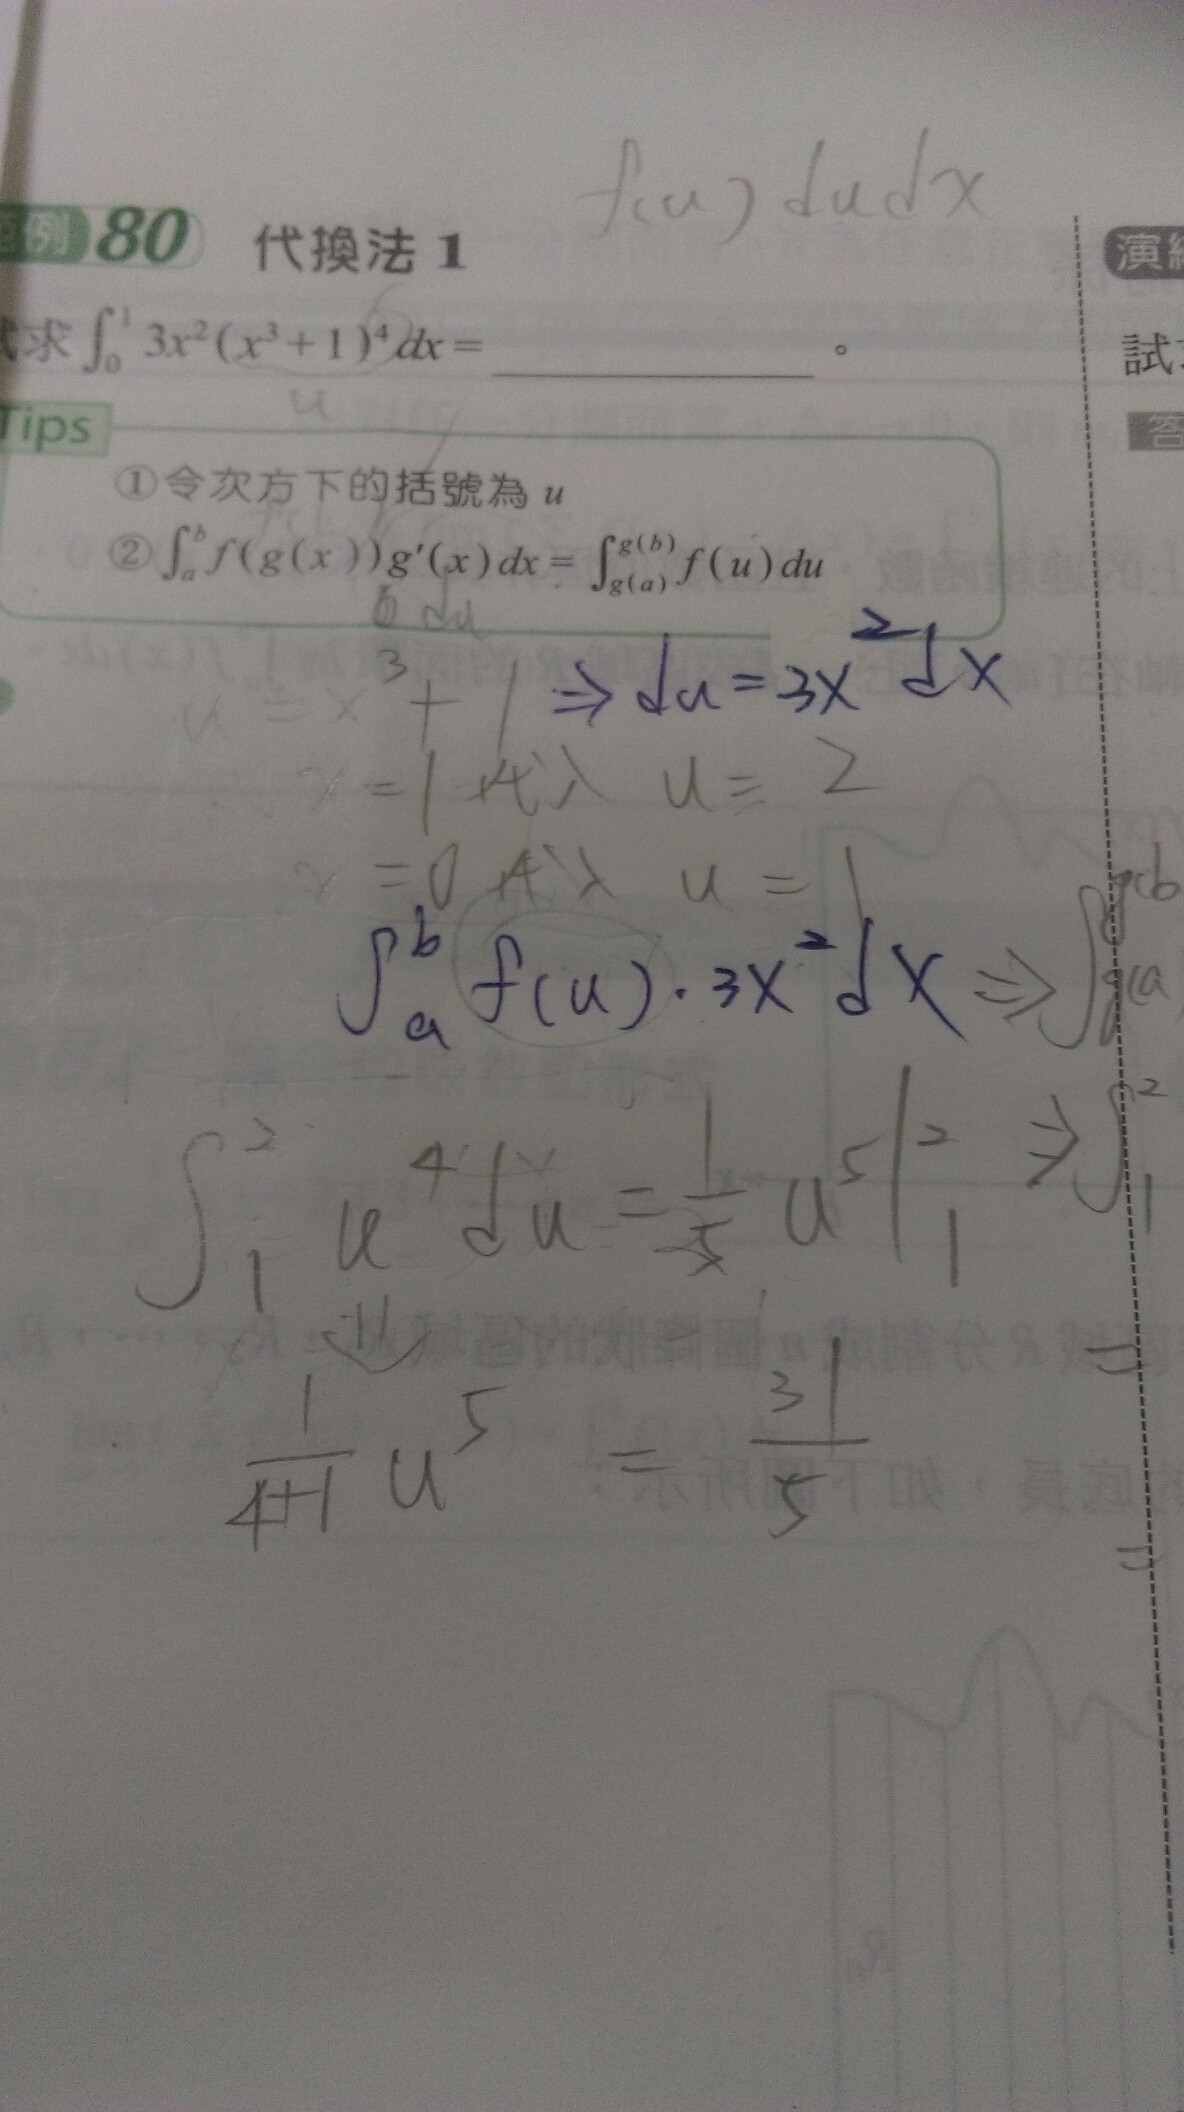 f(u) du dx
例 80 代換法 1
求 ∫₀¹ 3x²(x³+1)⁴ dx = ________ 。
u
Tips
①令次方下的括號為 u
②∫ₐᵇ f(g(x))g′(x)dx = ∫_{g(a)}^{g(b)} f(u)du
du
u = x³ + 1 ⇒ du = 3x² dx
x = 1 代入 u = 2
x = 0 代入 u = 1
∫ₐᵇ f(u)·3x² dx ⇒ ∫
∫₁² u⁴ du = 1/5 u⁵ |₁² ⇒ ∫₁²
1/(4+1) u⁵ = 31/5
=
=
演
試
答